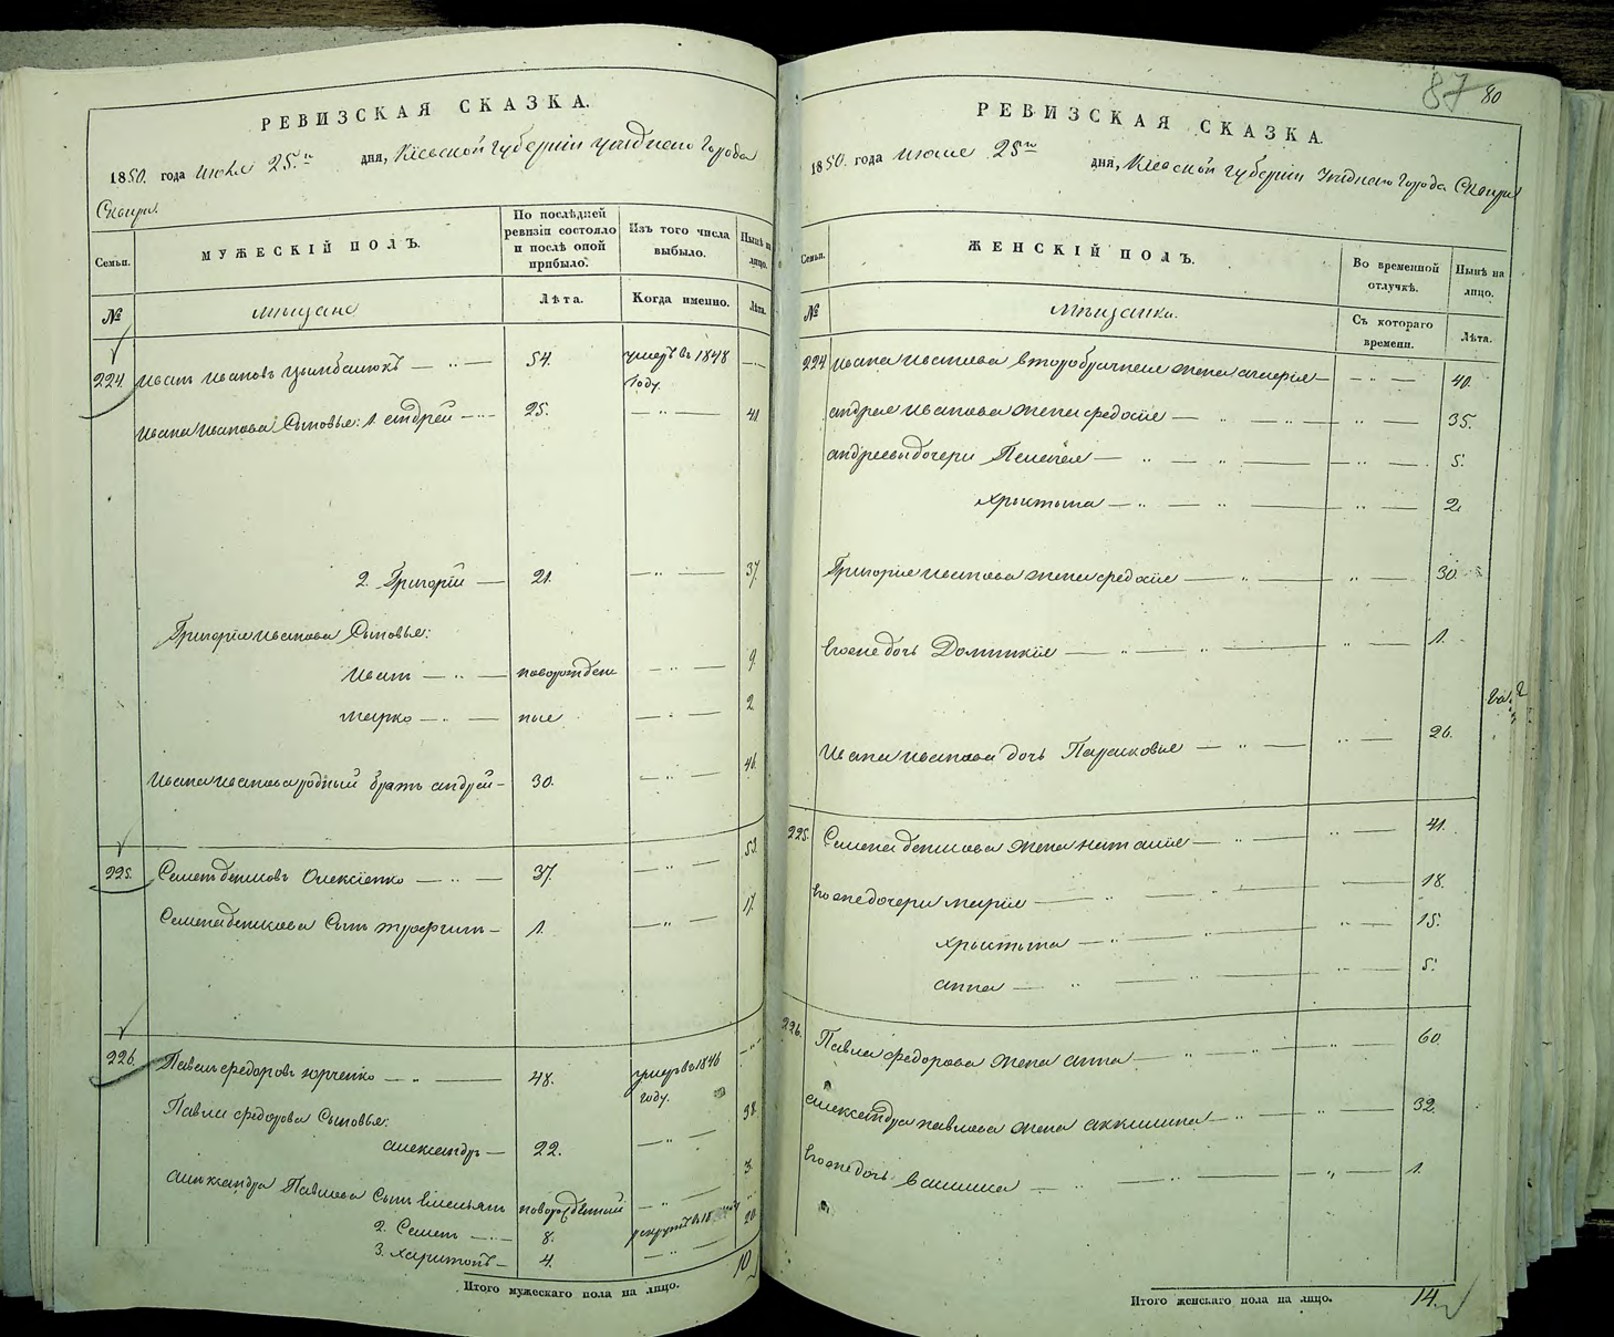 РЕВИЗСКАЯ СКАЗКА.
1850. года Июля 25.го дня, Кіевской губерніи уезднаго Города
Сквиры.
Семьи.
МУЖЕСКІЙ ПОЛЪ.
По послѣдней ревизіи состояло и послѣ оной прибыло.
Изъ того числа выбыло.
Нынѣ на лицо.
№
мещане
Лѣта.
Когда именно.
Лѣта.
224. Иванъ Ивановъ 54. умеръ въ 1848
году.
Ивана Иванова Сыновья: 1. Андрей 25. 41
2. Григорій 21. 37
Григорія Иванова Сыновья:
Иванъ новорожден 9
Марко ные 2
Ивана Иванова родный братъ Андрей 30. 46.
225. Семенъ Денисовъ Олексіенко 37. 53.
Семена Денисова Сынъ Трофимъ 1. 17.
226. Павелъ Федоровъ Юрченко 48. умеръ въ 1846
году.
Павла Федорова Сыновья:
Александръ 22. 38.
Александра Павлова Сынъ Емельянъ новорожденный 3.
2. Семенъ 8.
3. Харитонъ 4. 20
Итого мужескаго пола на лицо. 10
87 80
РЕВИЗСКАЯ СКАЗКА.
1850. года Июля 25го дня, Кіевской губерніи Уезднаго города Сквиры
Семьи.
ЖЕНСКІЙ ПОЛЪ.
Во временной отлучкѣ.
Нынѣ на лицо.
№
Мещанки.
Съ котораго времени.
Лѣта.
224 Ивана Иванова второбрачная жена 40.
Андрея Иванова жена Федосія 35.
Андреевы дочери Пелагея 5.
Хрыстына 2.
Григорія Иванова жена Федосія 30.
Его же дочь Домникія 1.
Ивана Иванова дочь Параковья 26.
225. Семена Денисова жена Наталія 41.
Его же дочери Марія 18.
Хрыстына 15.
Анна 5.
226. Павла Федорова жена Анна 60
Александра Павлова жена Аккилина 32.
Его же дочь 1.
Итого женскаго пола на лицо. 14.